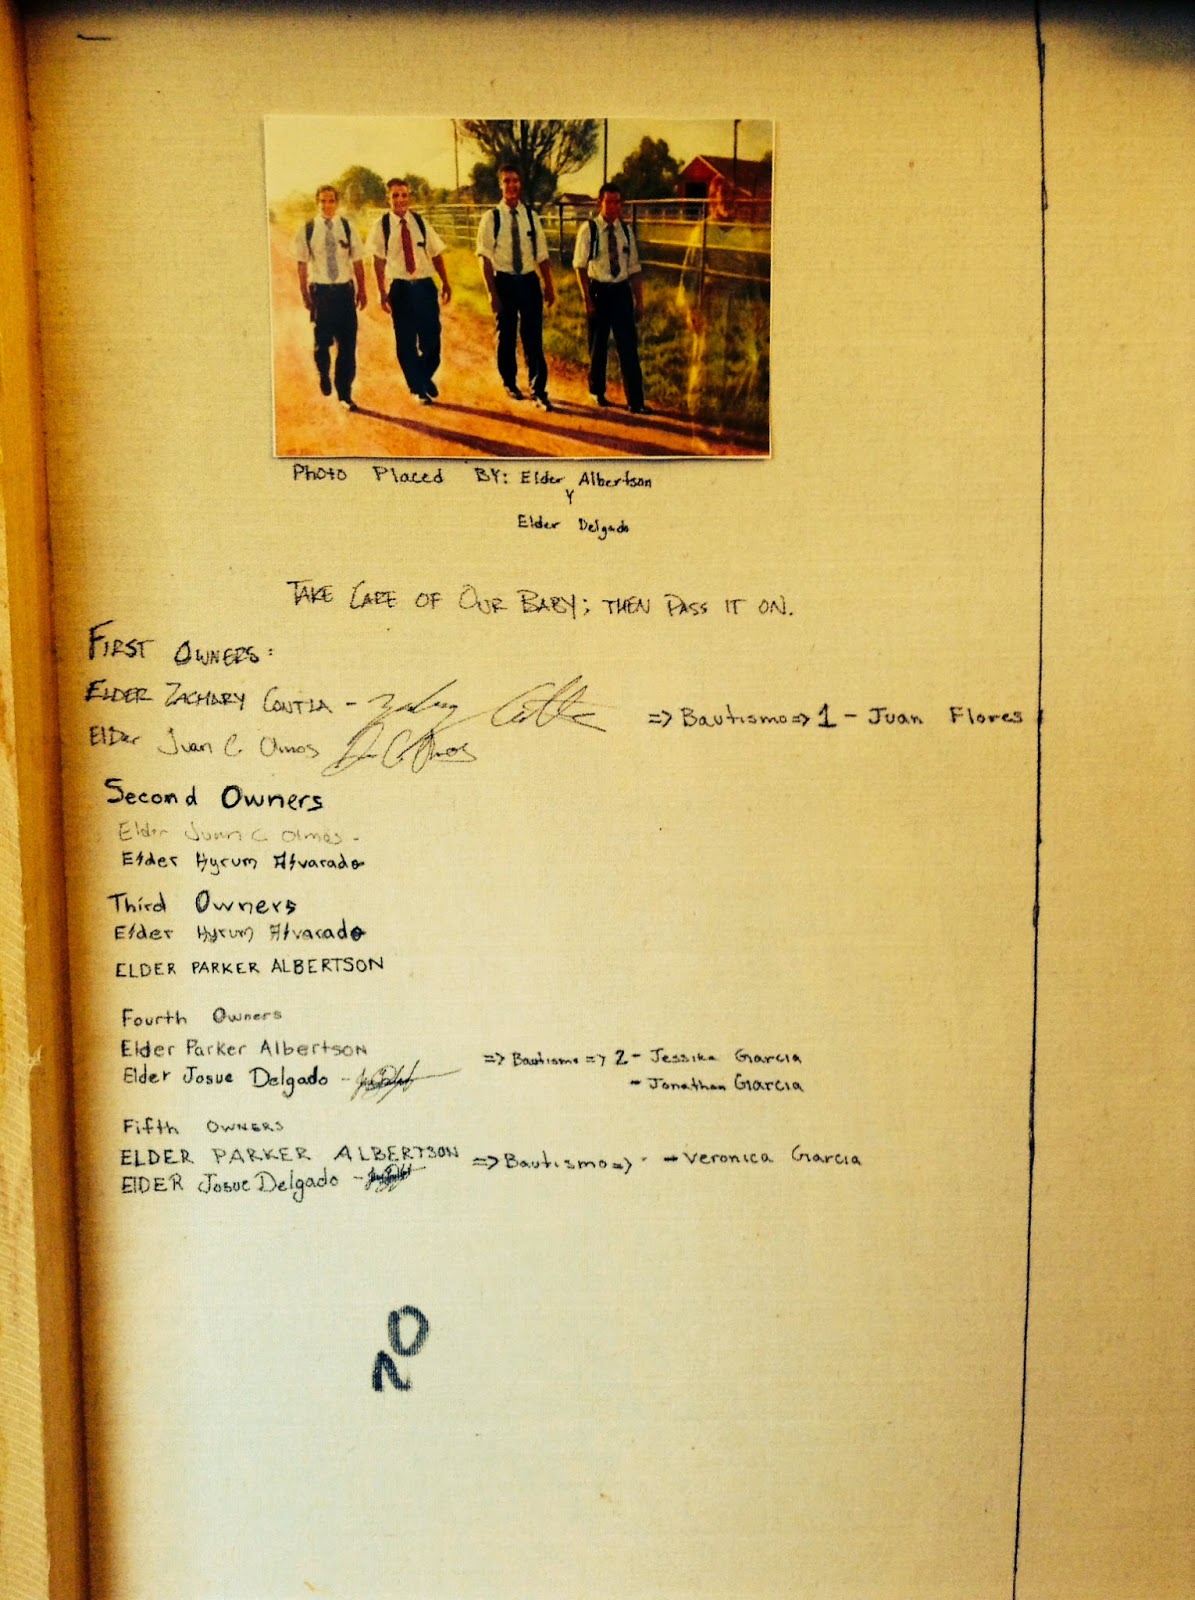 Photo Placed BY: Elder Albertson
Y
Elder Delgado
TAKE CARE OF OUR BABY; THEN PASS IT ON.
FIRST OWNERS:
ELDER ZACHARY CONTLA - => Bautismo => 1 - Juan Flores
ElDer Juan C. Olmos
Second Owners
Elder Juan C Olmos -
Elder Hyrum Alvarado
Third Owners
Elder Hyrum Alvarado
ELDER PARKER ALBERTSON
Fourth Owners
Elder Parker Albertson => Bautismo => 2 - Jessika Garcia
Elder Josue Delgado - - Jonathan Garcia
Fifth OWNERS
ELDER PARKER ALBERTSON => Bautismo => - Veronica Garcia
ElDER Josue Delgado -